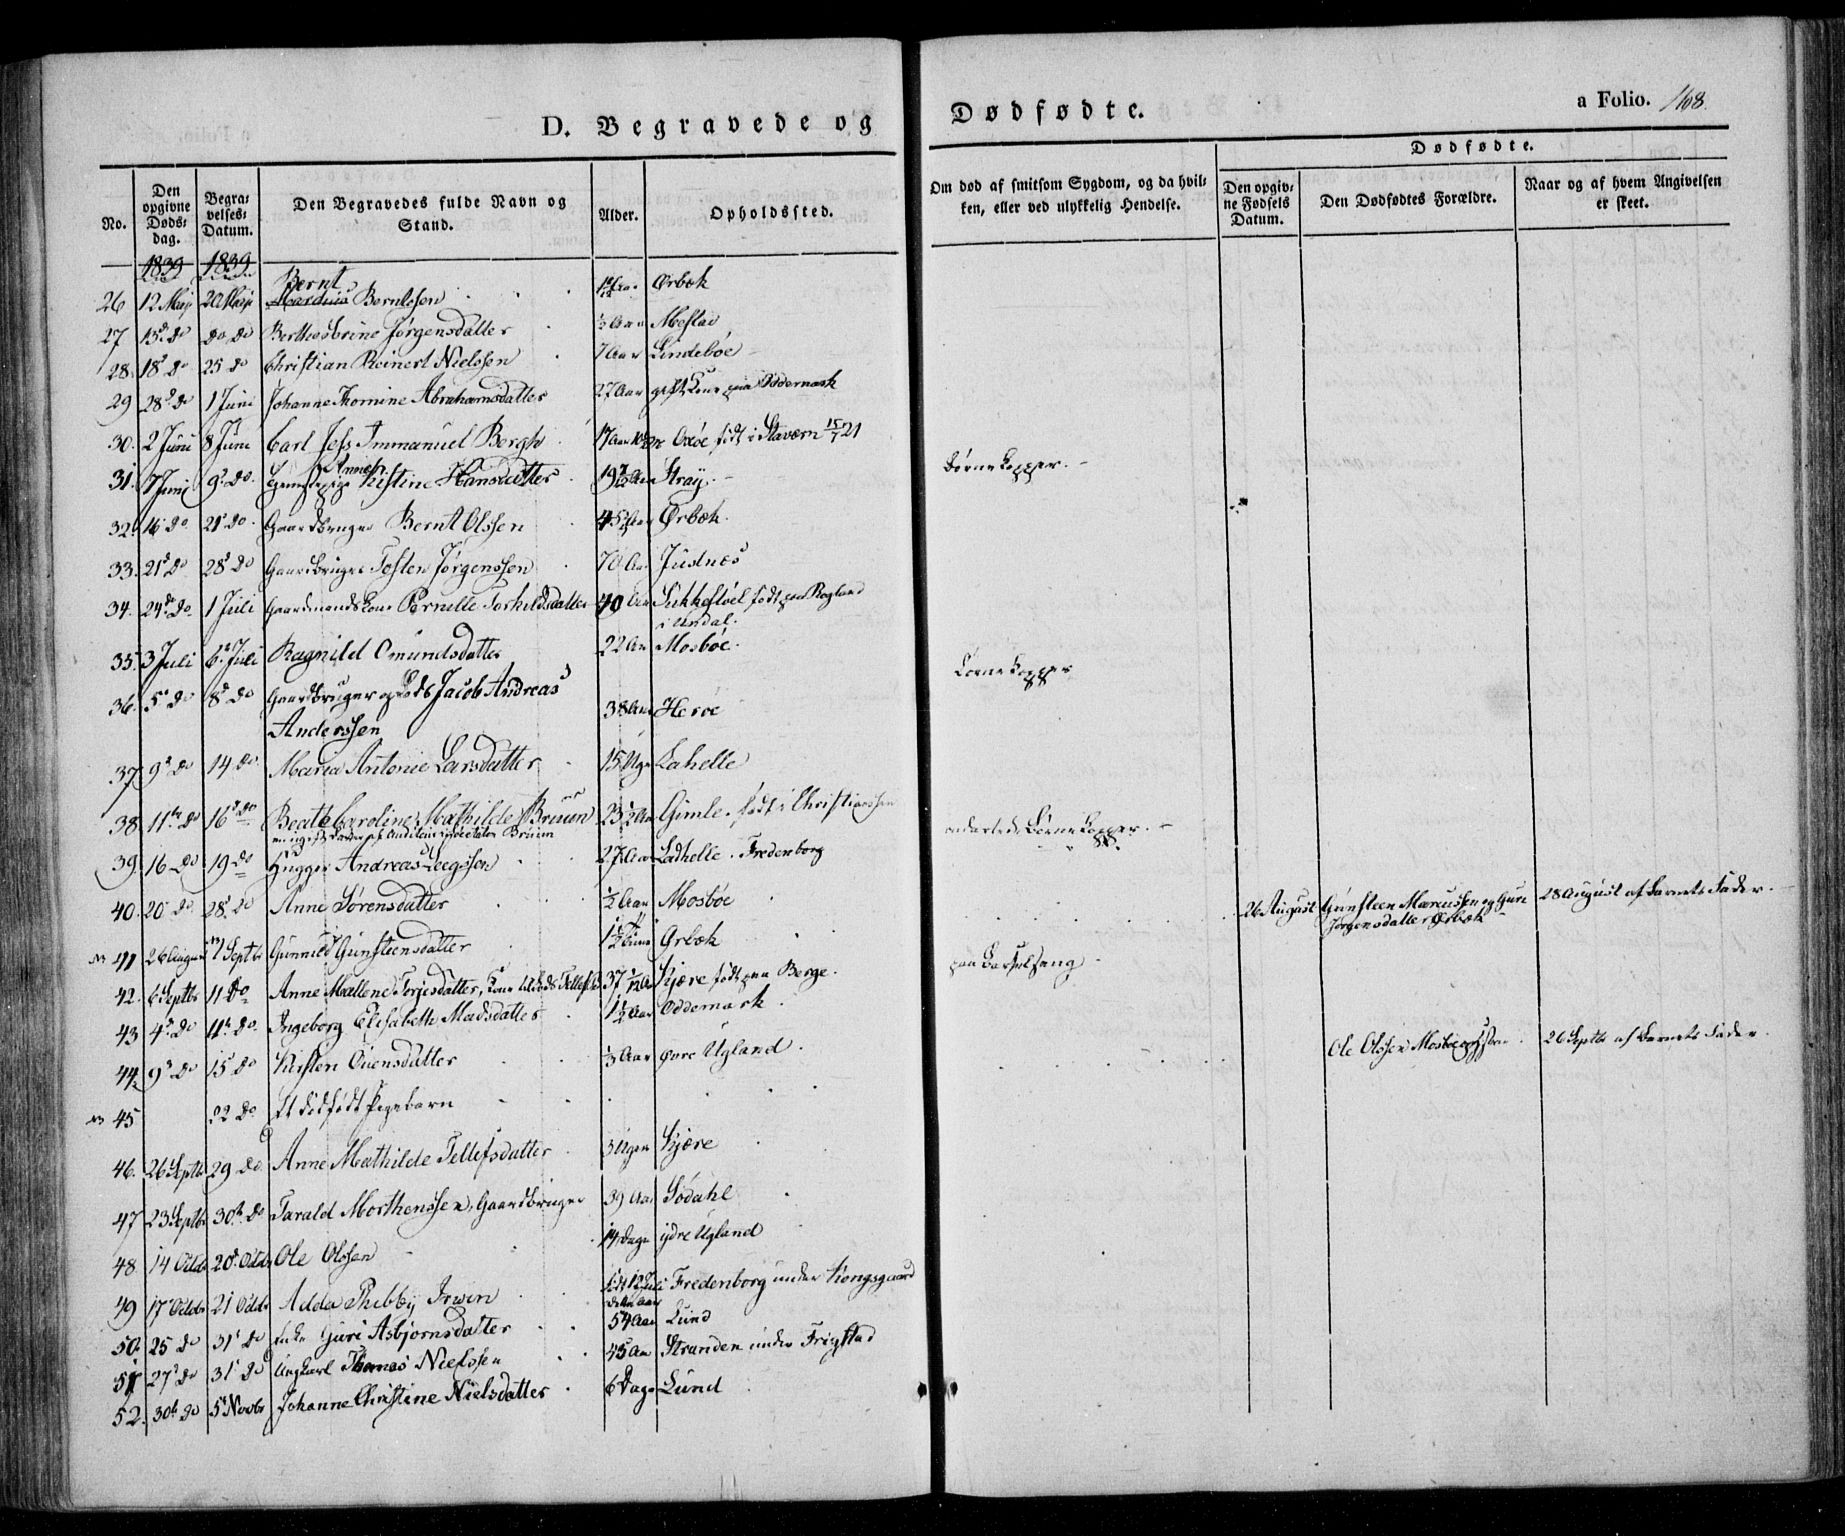 D. Begravede og Dødfødte.
a Folio. 168.
No.
Den opgivne Dødsdag.
Begravelses-Datum.
Den Begravedes fulde Navn og Stand.
Alder.
Opholdssted.
Om død af smitsom Sygdom, og da hvilken, eller ved ulykkelig Hendelse.
Dødfødte.
Den opgivne Fødsels Datum.
Den Dødfødtes Forældre.
Naar og af hvem Angivelsen er skeet.
1839 1839
26 12 Maij 20 Maij Bernt Berntssen Ørbek
27 13 do do do Jørgensdatter 1/3 Aar
28. 18 do 25 do Christian Reinert Nielssen 7 Aar Lindebøe
29 28 do 1 Juni Johanne Thomine Abrahamsdatter 27 Aar gift Kone paa Oddernæsk
30. 2 Juni 8 Juni Carl Jess Immanuel Bergh 17 Aar Oxøe født i Stavern 15/7 21 Børnekopper.
31. 7 Juni 9 do. Kistine Hansdatter 19 Aar Straÿ.
32. 16 do 21 do Gaardbruger Bernt Olssen 45 Aar Ørbek.
33. 21 do 28 do Gaardbruger Tosten Jørgenssen 70 Aar Justnæs
34. 24 do 1 Juli Gaardmandskone Pernille Torkildsdatter 40 Aar Sukkestøel født paa Røgland
i Undal.
35. 3 Juli 6 Juli Ragnild Omundsdatter 22 Aar Mosbøe. Børnekopper
36. 5 do 8 do Gaardbruger og Lods Jacob Andreas
Anderssen 38 Aar Herøe
37 9 do 14 do Maria Antonie Larsdatter 15 Uger Lahelle
38. 11te do 16 do Beate Caroline Mathilde Bruun 23 1/2 Aar Gimle, født i Christianssan Børnekopper.
39. 16 do 19 do Andreas 27 Aar Ladhelle. Fredenborg
40. 20 do 28 do Anne Sørensdatter 1/2 Aar Mosbøe
26 August Gunsteen Marcussen og Guri
Jørgensdatter Ørbek 28 August af Barnets Fader.
41 26 August 1 Septbr Gunnild Gunsteensdatter Ørbek
42. 6 Septbr 11 do Anne Mallene Torjesdatter, Kone 37 Aar Kjære født paa Berge. paa Barselseng
43 4 do 11 do. Ingeborg Elisabeth Madsdatter 1 1/2 Aar Oddernæsk
44 9 do 15 do Kirsten Ouensdatter 1/3 Aar øvre Ugland
45 22 do Et dødfødt Pigebarn
Ole Olssen Mosbøe 26 Septbr af Barnets Fader
46. 26 Septbr 29 do Anne Mathilde Tellefsdatter 3 Uger Kjære
47 23 Septbr 30 do Tarald Morthenssen, Gaardbruger 39 Aar Sødahl
48 14 Octbr 20 Octbr Ole Olssen 14 Dage ydre Ugland
49 17 Octbr 21 Octbr Adda Phebby Irwin født 12 Juli Fredenborg under Kongsgaard
dette Aar
50. 25 do 31 do Enke Guri Asbjørnsdatter 54 Aar Lund
51 27 do 31 do Ungkarl Thomas Nielssen 45 Aar Stranden under Frigstad
52. 30 do 5 Novbr Johanne Christine Nielsdatter 6 Dage Lund